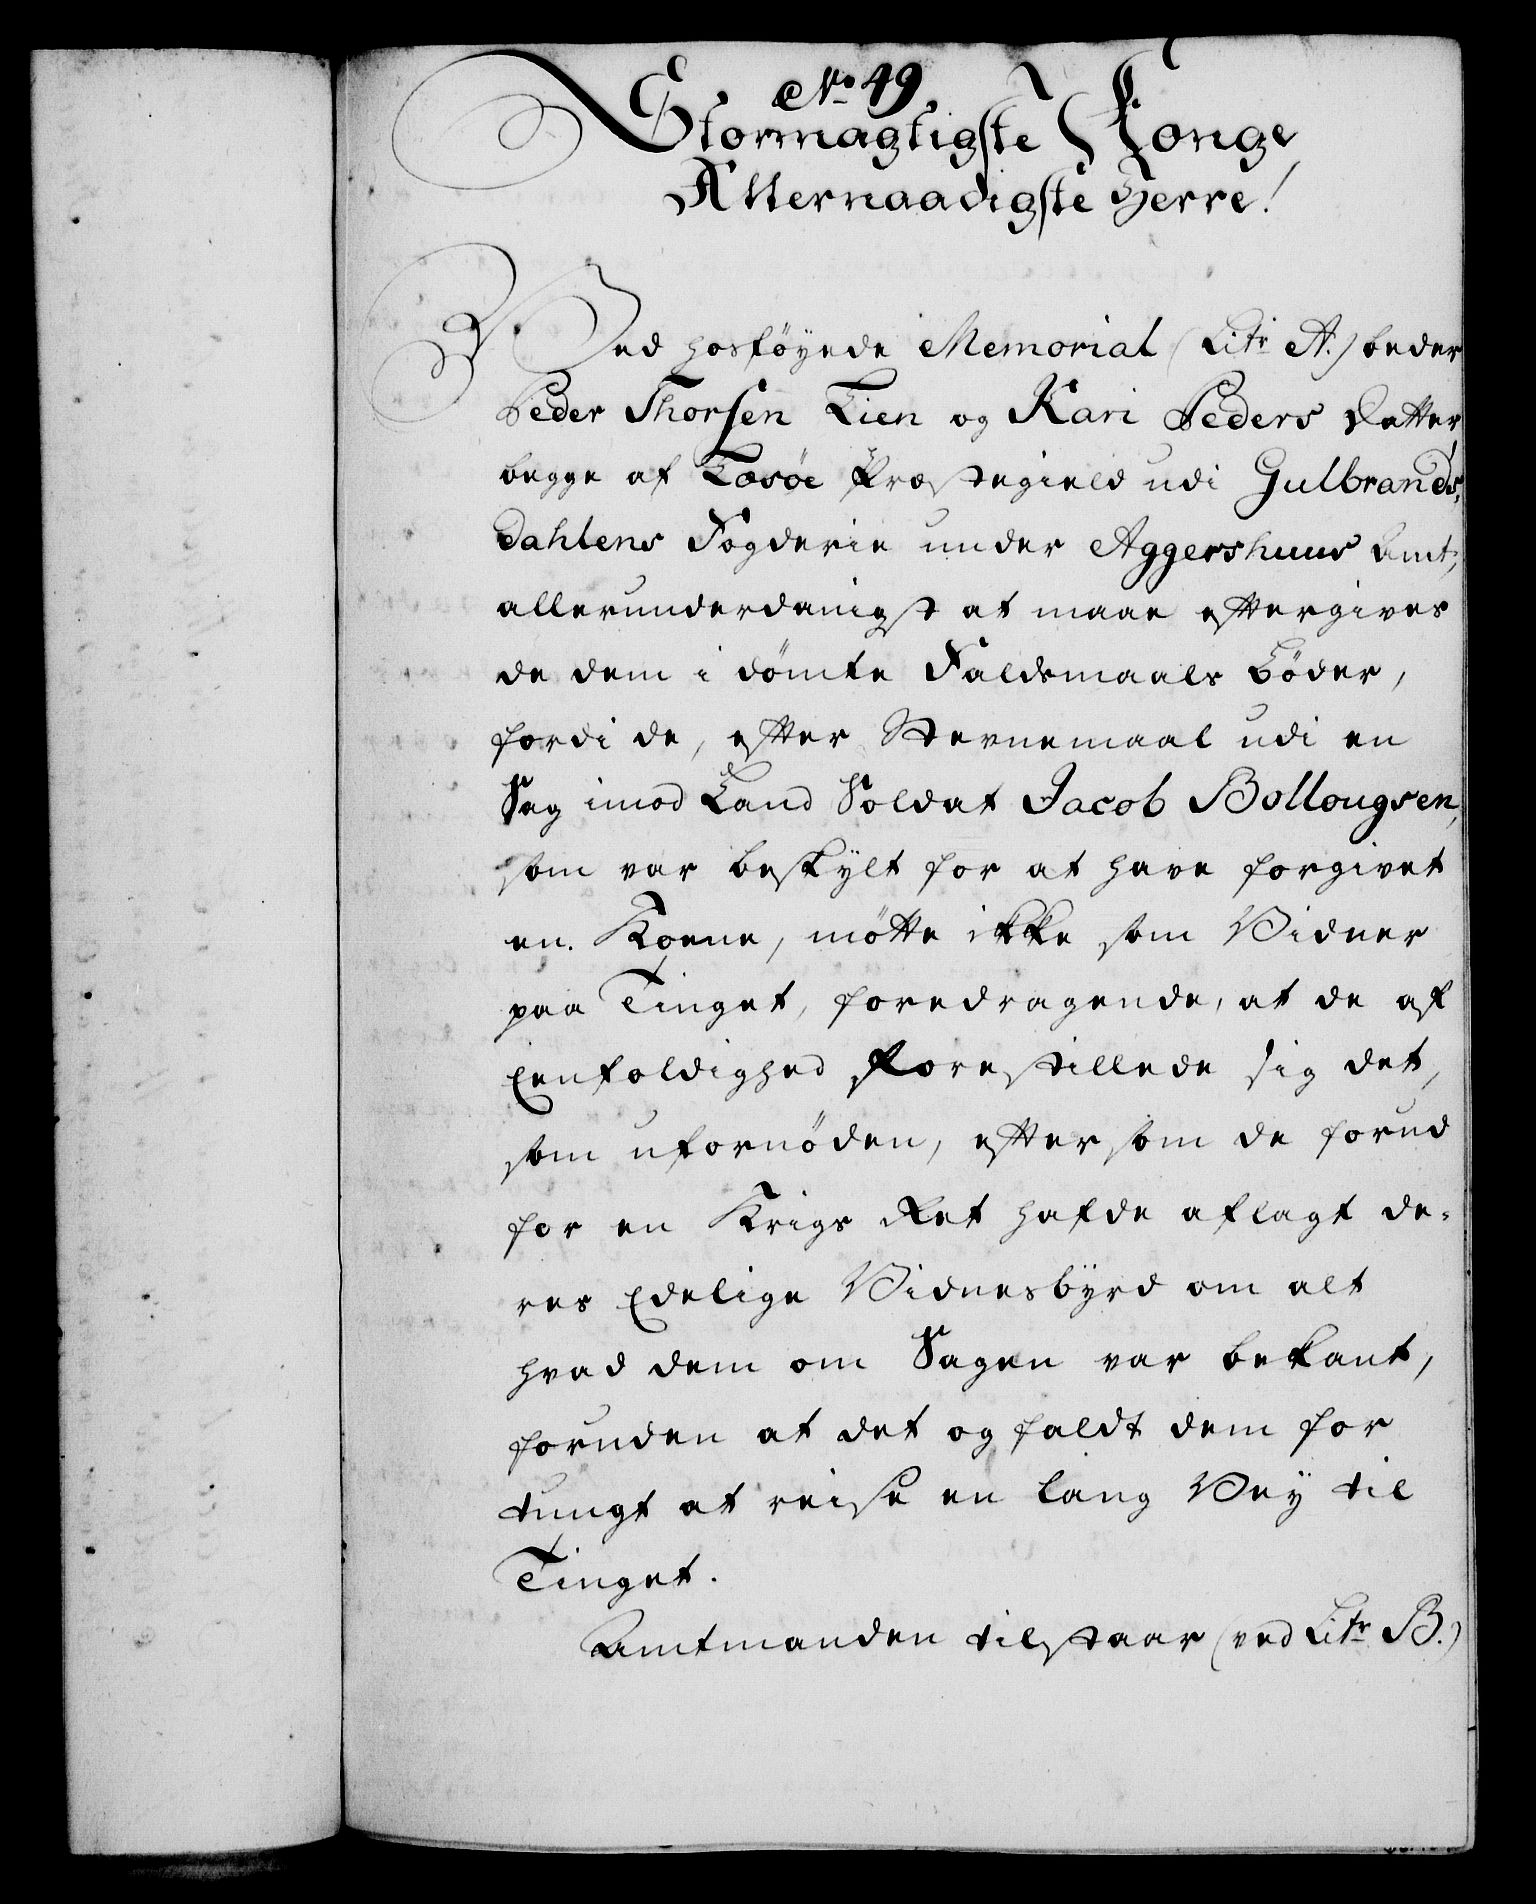 No 49
Stormagtigste Konge
Allernaadigste Herre!
Ved hosföyede Memorial (Litr A.) beder
Peder Thorsen Lien og Kari Peders Datter
begge af Læsøe Præstegield udi Gulbrands-
dahlens Fogderie under Aggershuus Amt,
allerunderdanigst at maae eftergives
de dem i dömte Faldsmaals Böder,
fordi de, efter Stevnemaal udi en
Sag imod Land Soldat Jacob Bollougsen,
som var beskylt for at have forgivet
en Kone, mötte ikke som Vidner
paa Tinget, foredragende, at de af
Eenfoldighed forestillede sig det,
som ufornöden, efter som de forud
for en Krigs Ret hafde aflagt de-
res Edelige Vidnesbyrd om alt
hvad dem om Sagen var bekant,
foruden at det og faldt dem for
tungt at reise en lang Vey til
Tinget.
Amtmanden tilstaar (ved Litr B.)